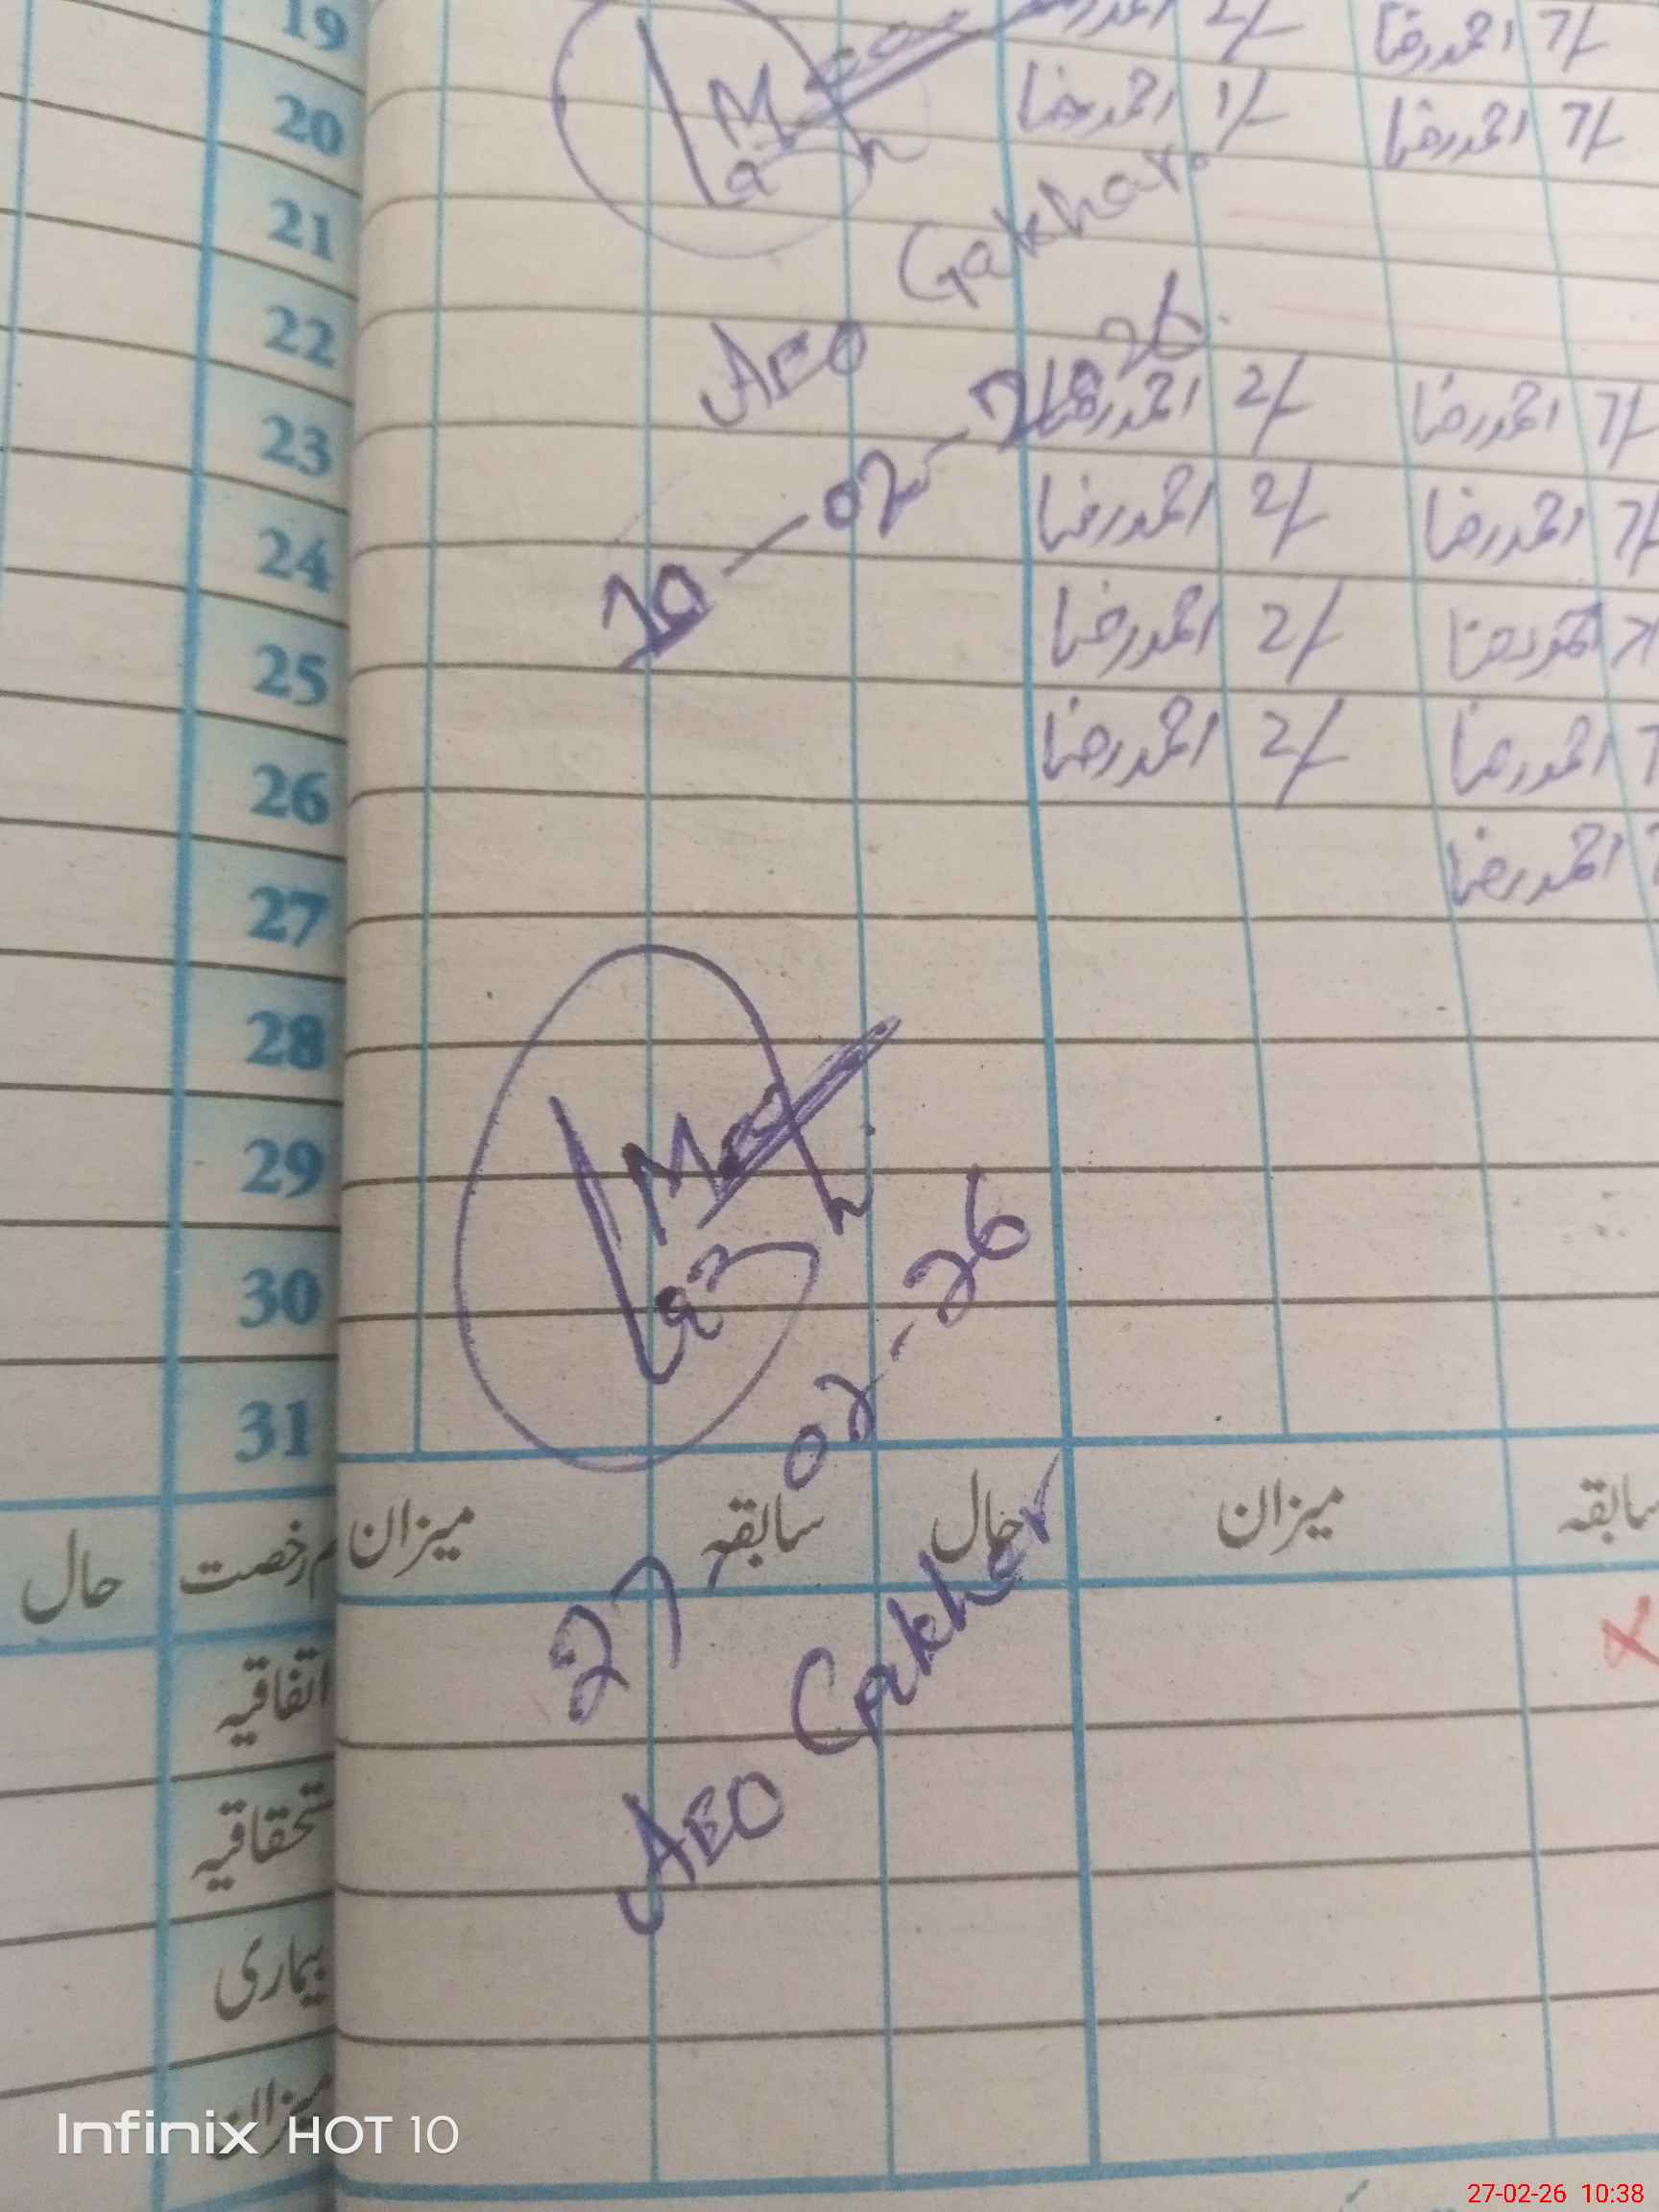 19 احمد رضا 2/- احمد رضا 7/-
20 احمد رضا 1/- احمد رضا 7/-
21
Gakhar
22
AEO
23 احمد رضا 2/- احمد رضا 7/-
02
24 احمد رضا 2/- احمد رضا 7/-
25 احمد رضا 2/-
26 احمد رضا 2/- احمد رضا 7
27 احمد رضا 7
28
29
30
31
27 02-26
حال رخصت میزان سابقہ حال میزان سابقہ
AEO Gakhar
اتفاقیہ
بیماری
میزان
Infinix HOT 10
27-02-26 10:38